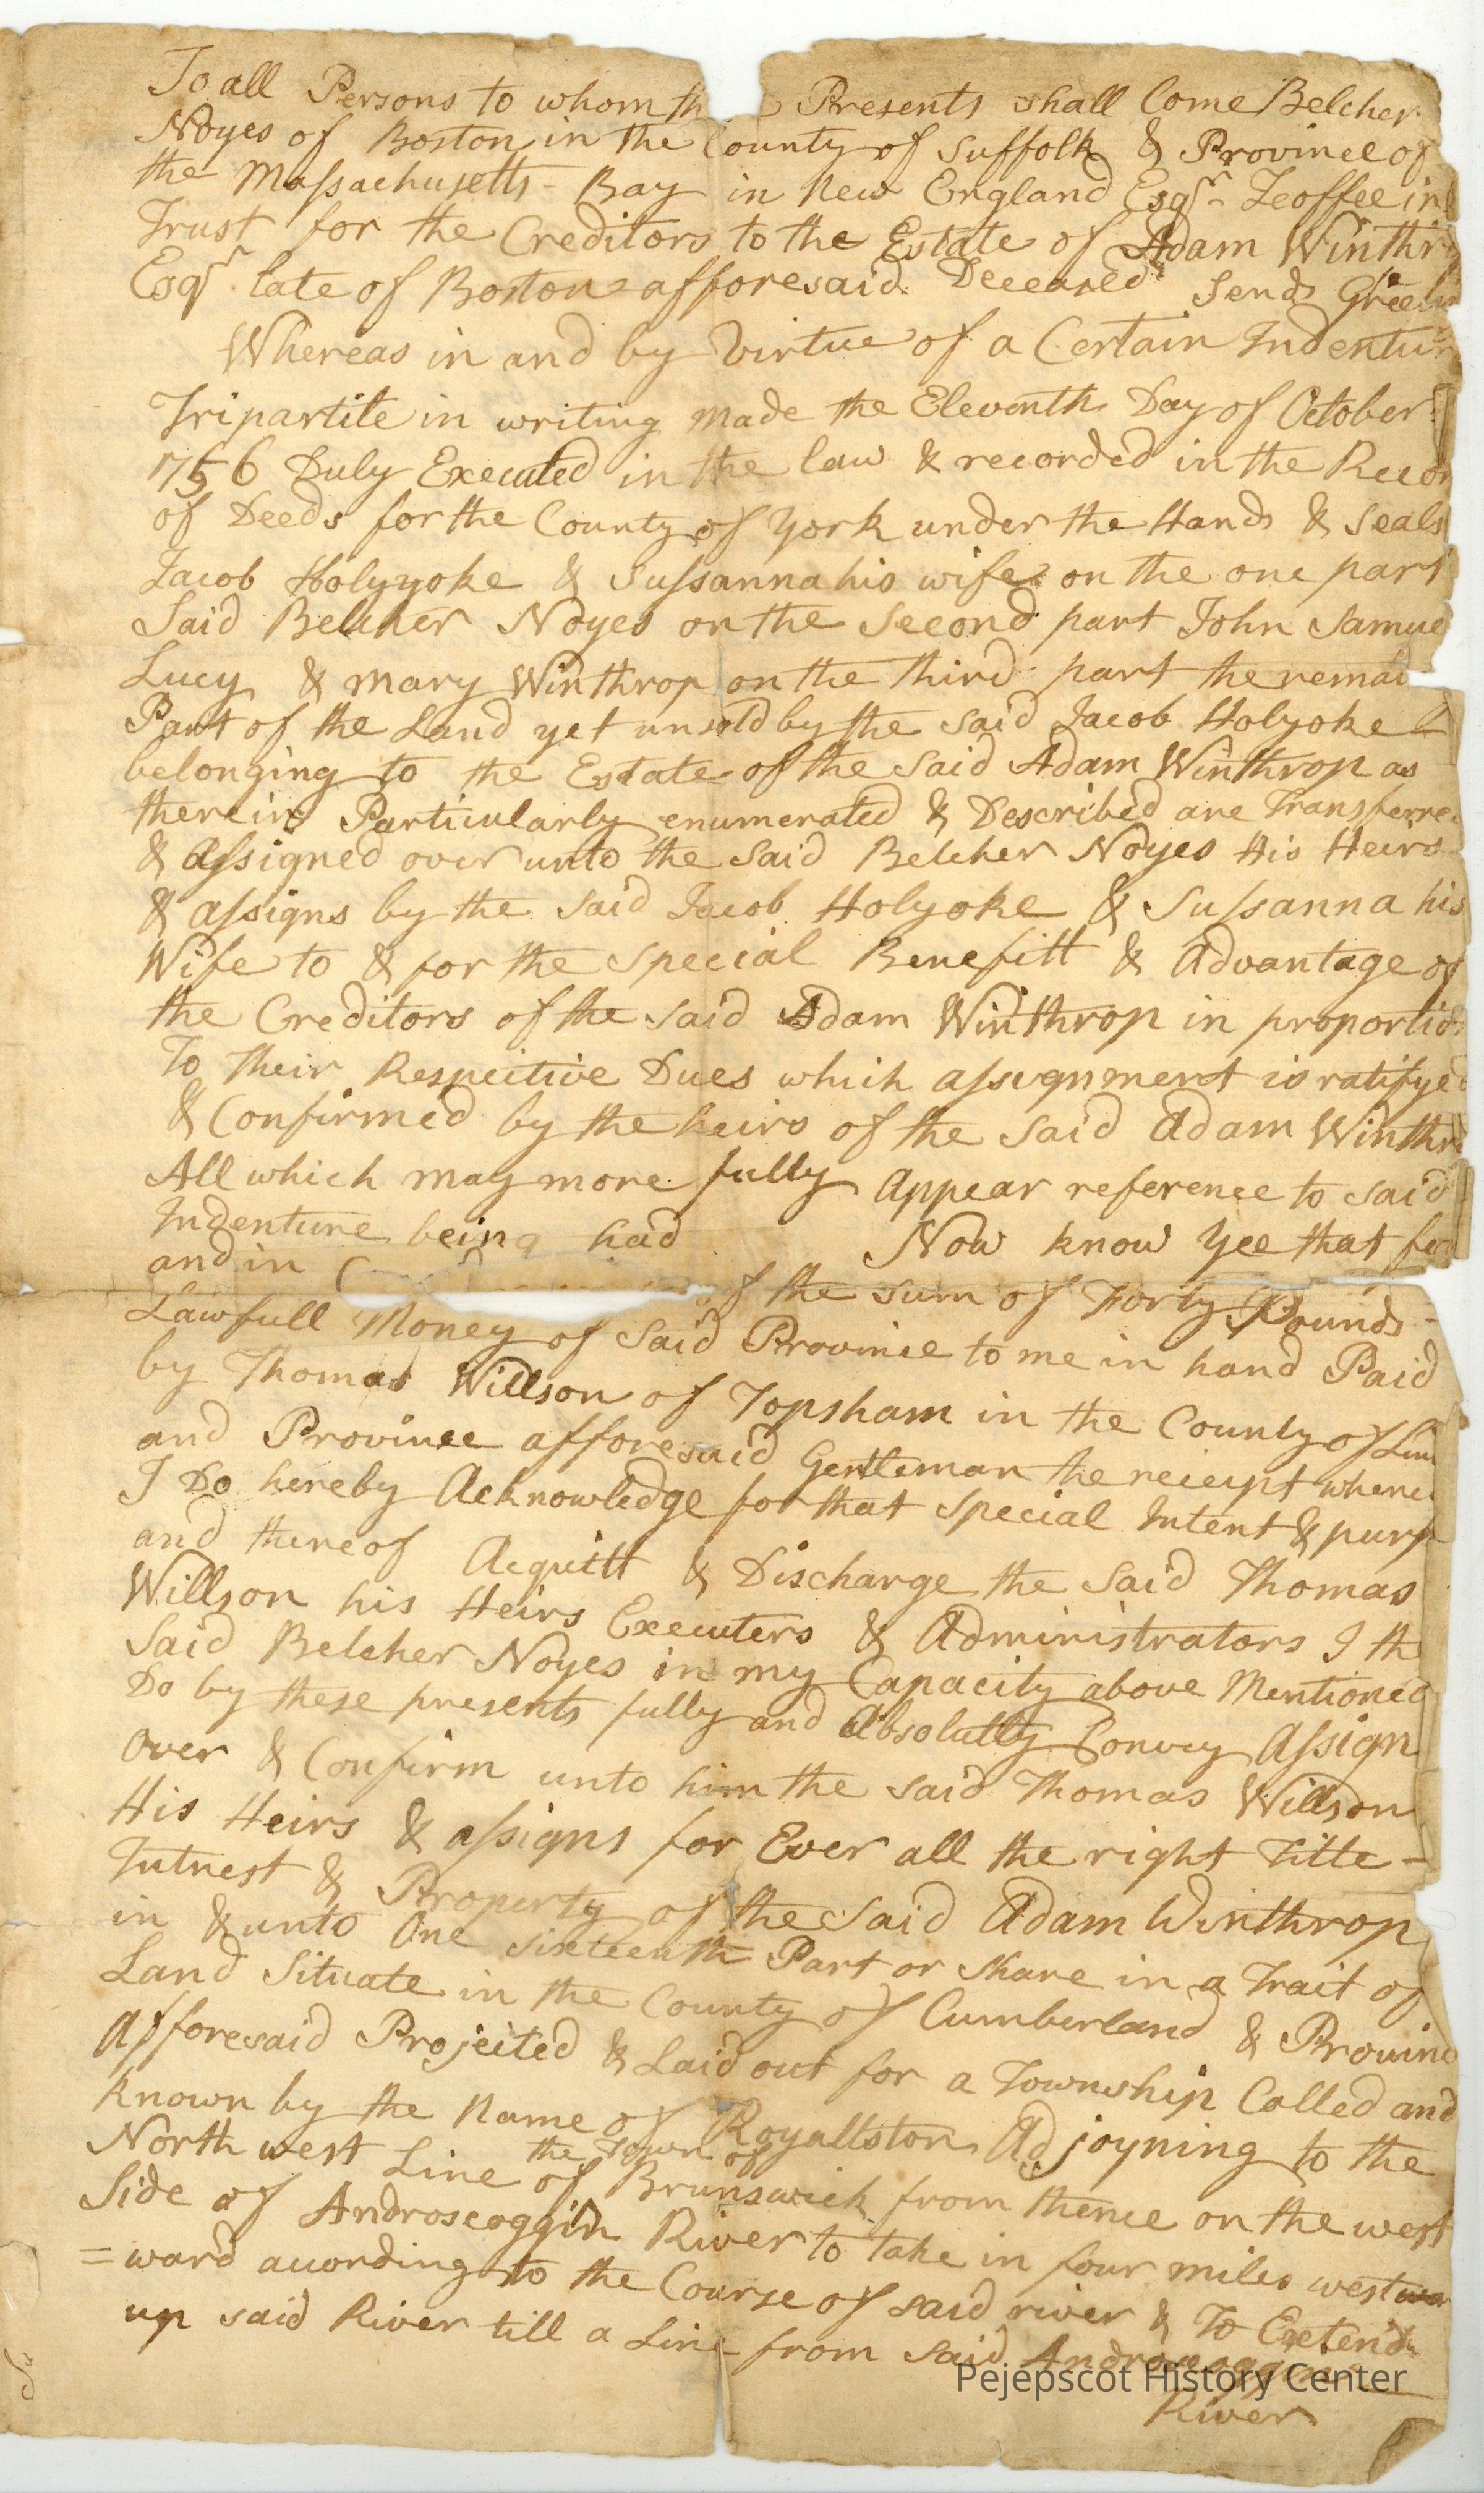 To all Persons to whom th Presents shall Come Belcher
Noyes of Boston in the County of Suffolk & Province of
the Massachusetts - Bay in New England Esqr. Feoffee in
Trust for the Creditors to the Estate of Adam Winthr
Esqr. late of Boston afforesaid Deceased Sends Greeti
Whereas in and by Virtue of a Certain Indentur
Tripartite in writing made the Eleventh Day of October
1756 Duly Executed in the law & recorded in the Recor
of Deeds for the County of York under the Hands & Seals
Jacob Holyyoke & Sussanna his wife on the one part
Said Belcher Noyes on the Second part John Samue
Lucy & Mary Winthrop on the third part the remai
Part of the Land yet unsold by the said Jacob Holyoke &
belonging to the Estate of the Said Adam Winthrop as
therein Particularly enumerated & Described are Transferre
& Assigned over unto the Said Belcher Noyes His Heirs
& assigns by the Said Jacob Holyoke & Sussanna his
Wife to & for the Special Benefitt & Advantage of
the Creditors of the said Adam Winthrop in proportio
To Their Respective Dues which assignment is ratifye
& Confirmed by the heirs of the Said Adam Winthr
All which may more fully Appear reference to said
Indenture being had Now know Yee that for
and in of the sum of Forty Pounds -
Lawfull Money of Said Province to me in hand Paid
by Thomas Willson of Topsham in the County of Lin
and Province afforesaid Gentleman the receipt where
I Do hereby Acknowledge for that Special Intent & purp
and thereof Acquitt & Discharge the Said Thomas
Willson his Heirs Executers & Administrators I th
Said Belcher Noyes in my Capacity above Mentioned
Do by these presents fully and Absolutly Convey Assign
Over & Confirm unto him the said Thomas Willson
His Heirs & assigns for Ever all the right Title -
Intrest & Property of the Said Adam Winthrop
in & unto One sixteenth Part or Share in a Trait of
Land Situate in the County of Cumberland & Provinc
Afforesaid Projected & Laid out for a Township Called and
known by the Name of Royallston Adjoyning to the
North west Line of the Town of Brunswick from thence on the west
Side of Androscoggin River to take in four miles westwar
=ward according to the Course of said river & To Extend
up said River till a Line from said Androscoggin
River
Pejepscot History Center